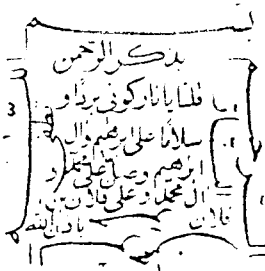 بذكر الرحمن
قلنا يا نار كوني بردا و
سلاما على ابرهيم وال
ابرهيم وصل على محمد و
ال محمد و على فلان بن
فلان باذن الله